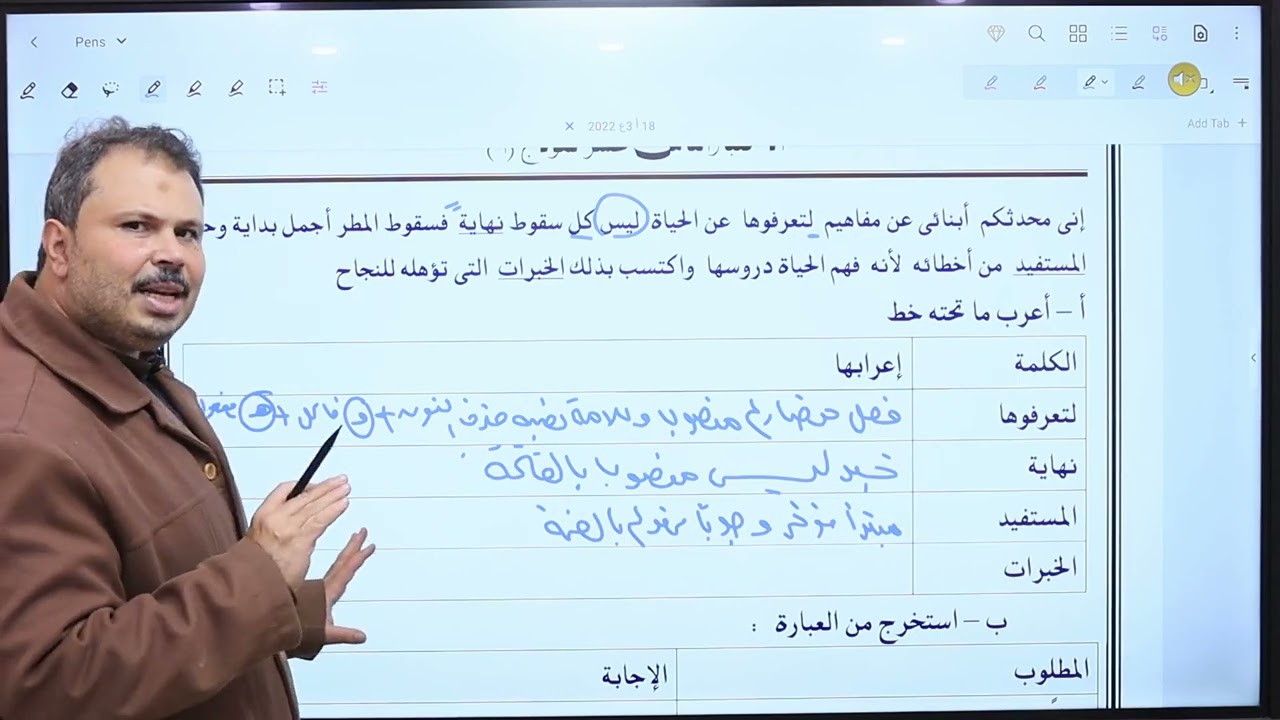 Pens
18 أ 3ع 2022
Add Tab
إنى محدثكم أبنائى عن مفاهيم لتعرفوها عن الحياة ليس كل سقوط نهاية فسقوط المطر أجمل بداية
المستفيد من أخطائه لأنه فهم الحياة دروسها واكتسب بذلك الخبرات التى تؤهله للنجاح
أ – أعرب ما تحته خط
الكلمة إعرابها
لتعرفوها فعل مضارع منصوب وعلامة نصبه حذف النون + و فاعل + ها
نهاية خبر ليس منصوب بالفتحة
المستفيد مبتدأ مؤخر وجوبًا مرفوع بالضمة
الخبرات
ب – استخرج من العبارة :
المطلوب الإجابة